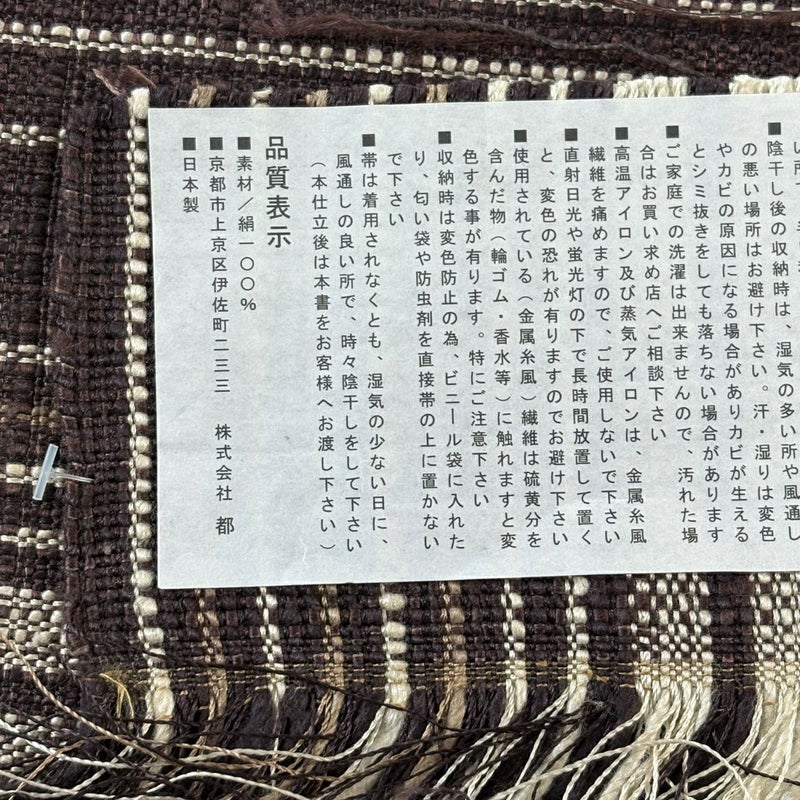 ■陰干し後の収納時は、湿気の多い所や風通し
の悪い場所はお避け下さい。汗・湿りは変色
やカビの原因になる場合がありカビが生える
とシミ抜きをしても落ちない場合があります
■ご家庭での洗濯は出来ませんので、汚れた場
合はお買い求め店へご相談下さい
■高温アイロン及び蒸気アイロンは、金属糸風
繊維を痛めますので、ご使用しないで下さい
■直射日光や蛍光灯の下で長時間放置して置く
と、変色の恐れが有りますのでお避け下さい
■使用されている（金属糸風）繊維は硫黄分を
含んだ物（輪ゴム・香水等）に触れますと変
色する事が有ります。特にご注意下さい
■収納時は変色防止の為、ビニール袋に入れた
り、匂い袋や防虫剤を直接帯の上に置かない
で下さい
■帯は着用されなくとも、湿気の少ない日に、
風通しの良い所で、時々陰干しをして下さい
（本仕立後は本書をお客様へお渡し下さい）
品質表示
■素材／絹一〇〇％
■京都市上京区伊佐町二三三 株式会社 都
■日本製